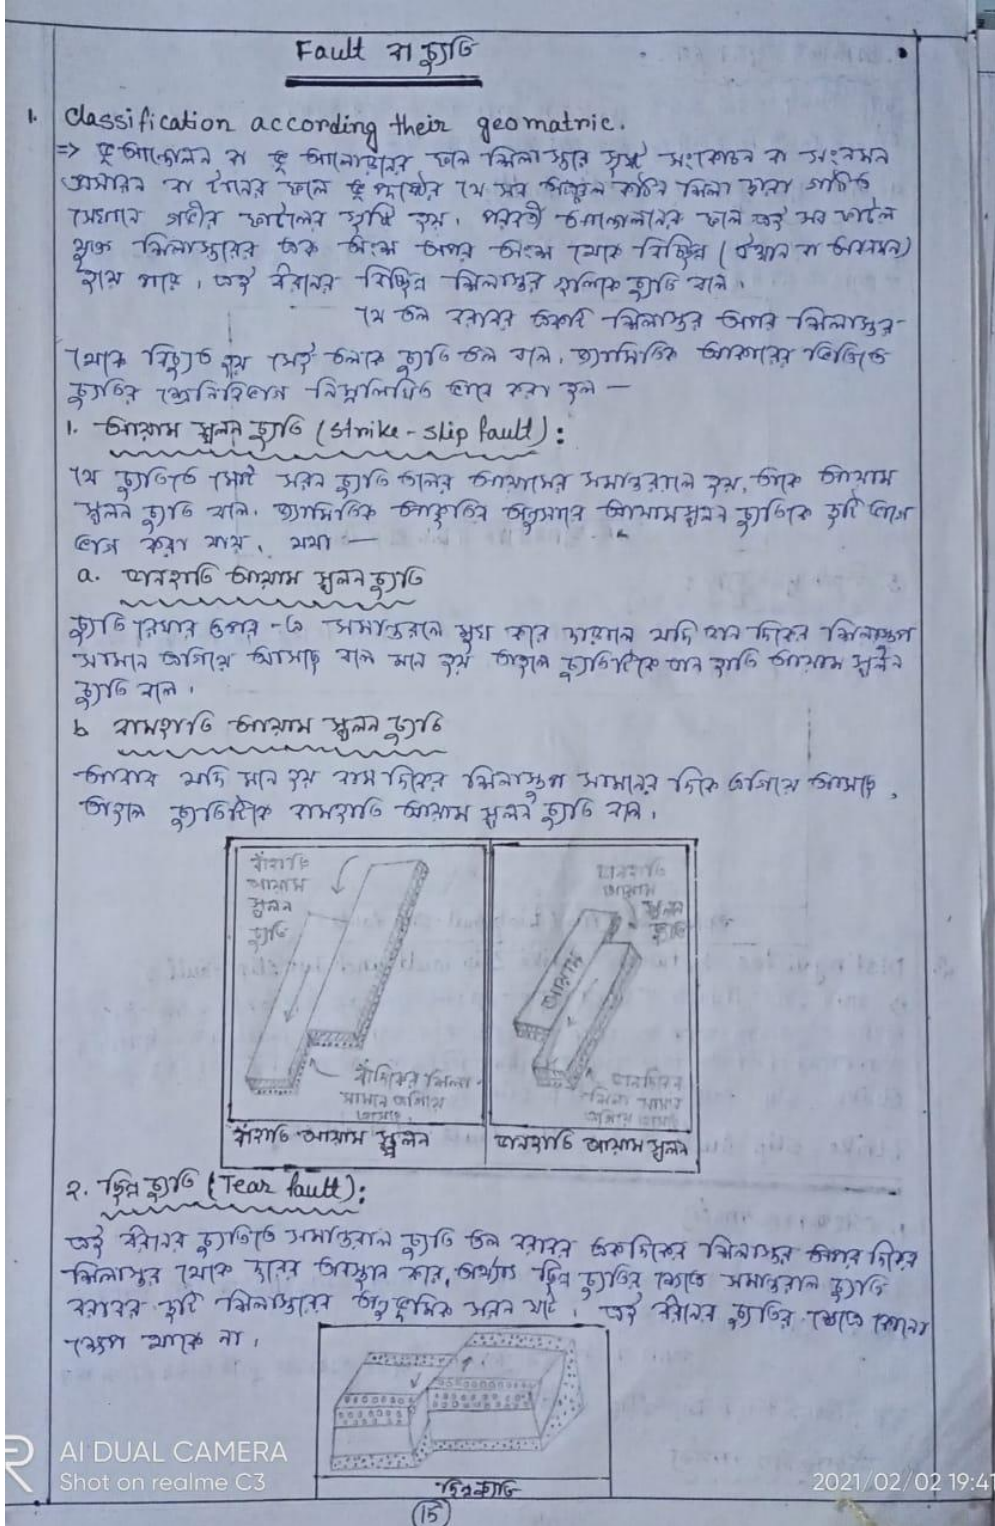 Fault বা চ্যুতি
1. Classification according their geomatric.
=> ভূ আন্দোলন বা ভূ আলোড়নের ফলে শিলাস্তরে সৃষ্ট সংকোচন বা সংনমন
প্রসারন বা টানের ফলে ভূ পৃষ্ঠের যে সব অঞ্চল কঠিন শিলা দ্বারা গঠিত
সেখানে গভীর ফাটলের সৃষ্টি হয়। পরবর্তী আন্দোলনের ফলে এই সব ফাটল
যুক্ত শিলাস্তরের এক অংশ অপর অংশ থেকে বিচ্ছিন্ন (উত্থান বা অবনমন)
হয়ে পরে, এই ধরনের বিচ্ছিন্ন শিলাস্তর গুলিকে চ্যুতি বলে।
যে তল বরাবর একটি শিলাস্তর অপর শিলাস্তর
থেকে বিচ্যুত হয় সেই তলকে চ্যুতি তল বলে, জ্যামিতিক আকারের ভিত্তিতে
চ্যুতির শ্রেনিবিভাগ নিম্নলিখিত ভাবে করা হল —
1. আয়াম স্খলন চ্যুতি (Strike-slip fault):
যে চ্যুতিতে মোট সরন চ্যুতি তলের আয়ামের সমান্তরালে হয়, তাকে আয়াম
স্খলন চ্যুতি বলে. জ্যামিতিক আকৃতির অনুসারে আয়ামস্খলন চ্যুতিকে দুটি ভাগে
ভাগ করা যায়, যথা —
a. ডানহাতি আয়াম স্খলন চ্যুতি
চ্যুতি রেখার ওপর -এ সমান্তরালে মুখ করে দাঁড়ালে যদি ডান দিকের শিলাস্তুপ
সামনে এগিয়ে আসছে বলে মনে হয় তাহলে চ্যুতিটিকে ডান হাতি আয়াম স্খলন
চ্যুতি বলে।
b বামহাতি আয়াম স্খলন চ্যুতি
আবার যদি মনে হয় বাম দিকের শিলাস্তুপ সামনের দিকে এগিয়ে আসছে,
তাহলে চ্যুতিটিকে বামহাতি আয়াম স্খলন চ্যুতি বলে।
বাঁহাতি
আয়াম
স্খলন
চ্যুতি
বাঁদিকের শিলা
সামনে এগিয়ে
আসছে
বাঁহাতি আয়াম স্খলন
ডানহাতি
আয়াম
স্খলন
চ্যুতি
আয়াম
ডানদিকের
শিলা সামনে
এগিয়ে আসছে
ডানহাতি আয়াম স্খলন
২. ছিন্ন চ্যুতি (Tear fault):
এই ধরনের চ্যুতিতে সমান্তরাল চ্যুতি তল বরাবর একদিকের শিলাস্তর অপর দিকের
শিলাস্তর থেকে দূরের অবস্থান করে, অর্থাৎ ছিন্ন চ্যুতির ক্ষেত্রে সমান্তরাল চ্যুতি
বরাবর দুটি শিলাস্তরের অনুভূমিক সরন ঘটে। এই ধরনের চ্যুতির ক্ষেত্রে কোনো
থাকে না।
ছিন্নচ্যুতি
15
AI DUAL CAMERA
Shot on realme C3
2021/02/02 19:41